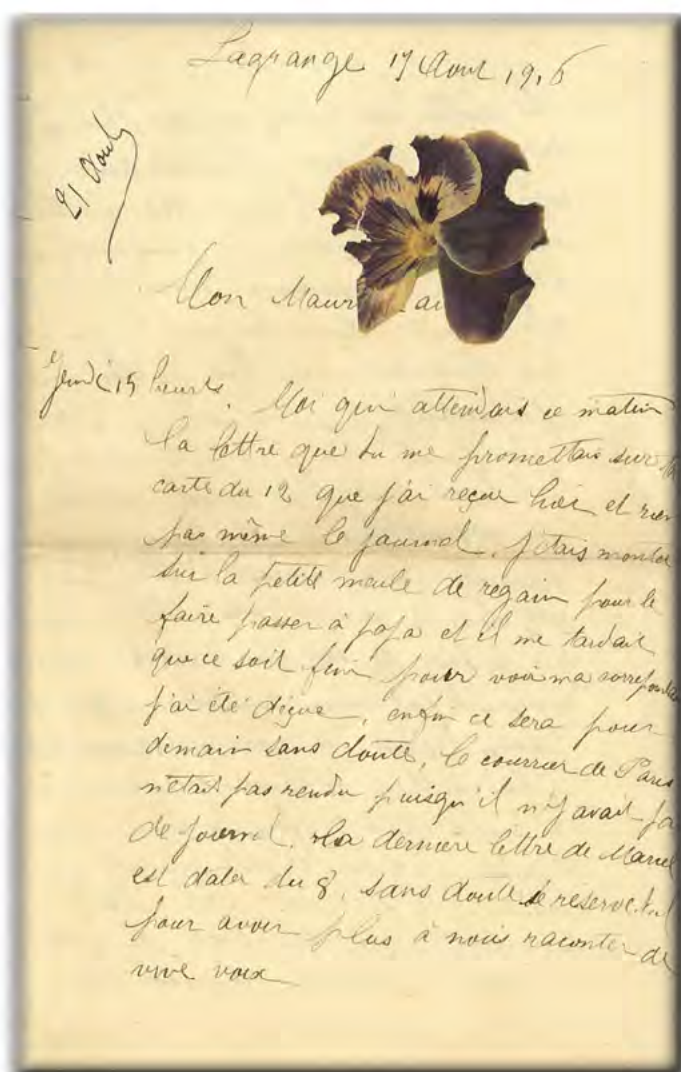 Lagrange 17 Aout 1916
21 Aout
Mon Maur
Jeudi 15 heures. Moi qui attendais ce matin
la lettre que tu me promettais sur ta
carte du 12 que j'ai reçue hier et rien
pas même le journal. J'étais montée
sur la petite meule de regain pour le
faire passer à papa et il me tardait
que ce soit fini pour voir ma
j'ai été déçue, enfin ce sera pour
demain sans doute, le courrier de Paris
n'était pas rendu puisqu'il n'y avait pas
de journal. La dernière lettre de Marcel
est datée du 8, sans doute se reserve t'il
pour avoir plus à nous raconter de
vive voix